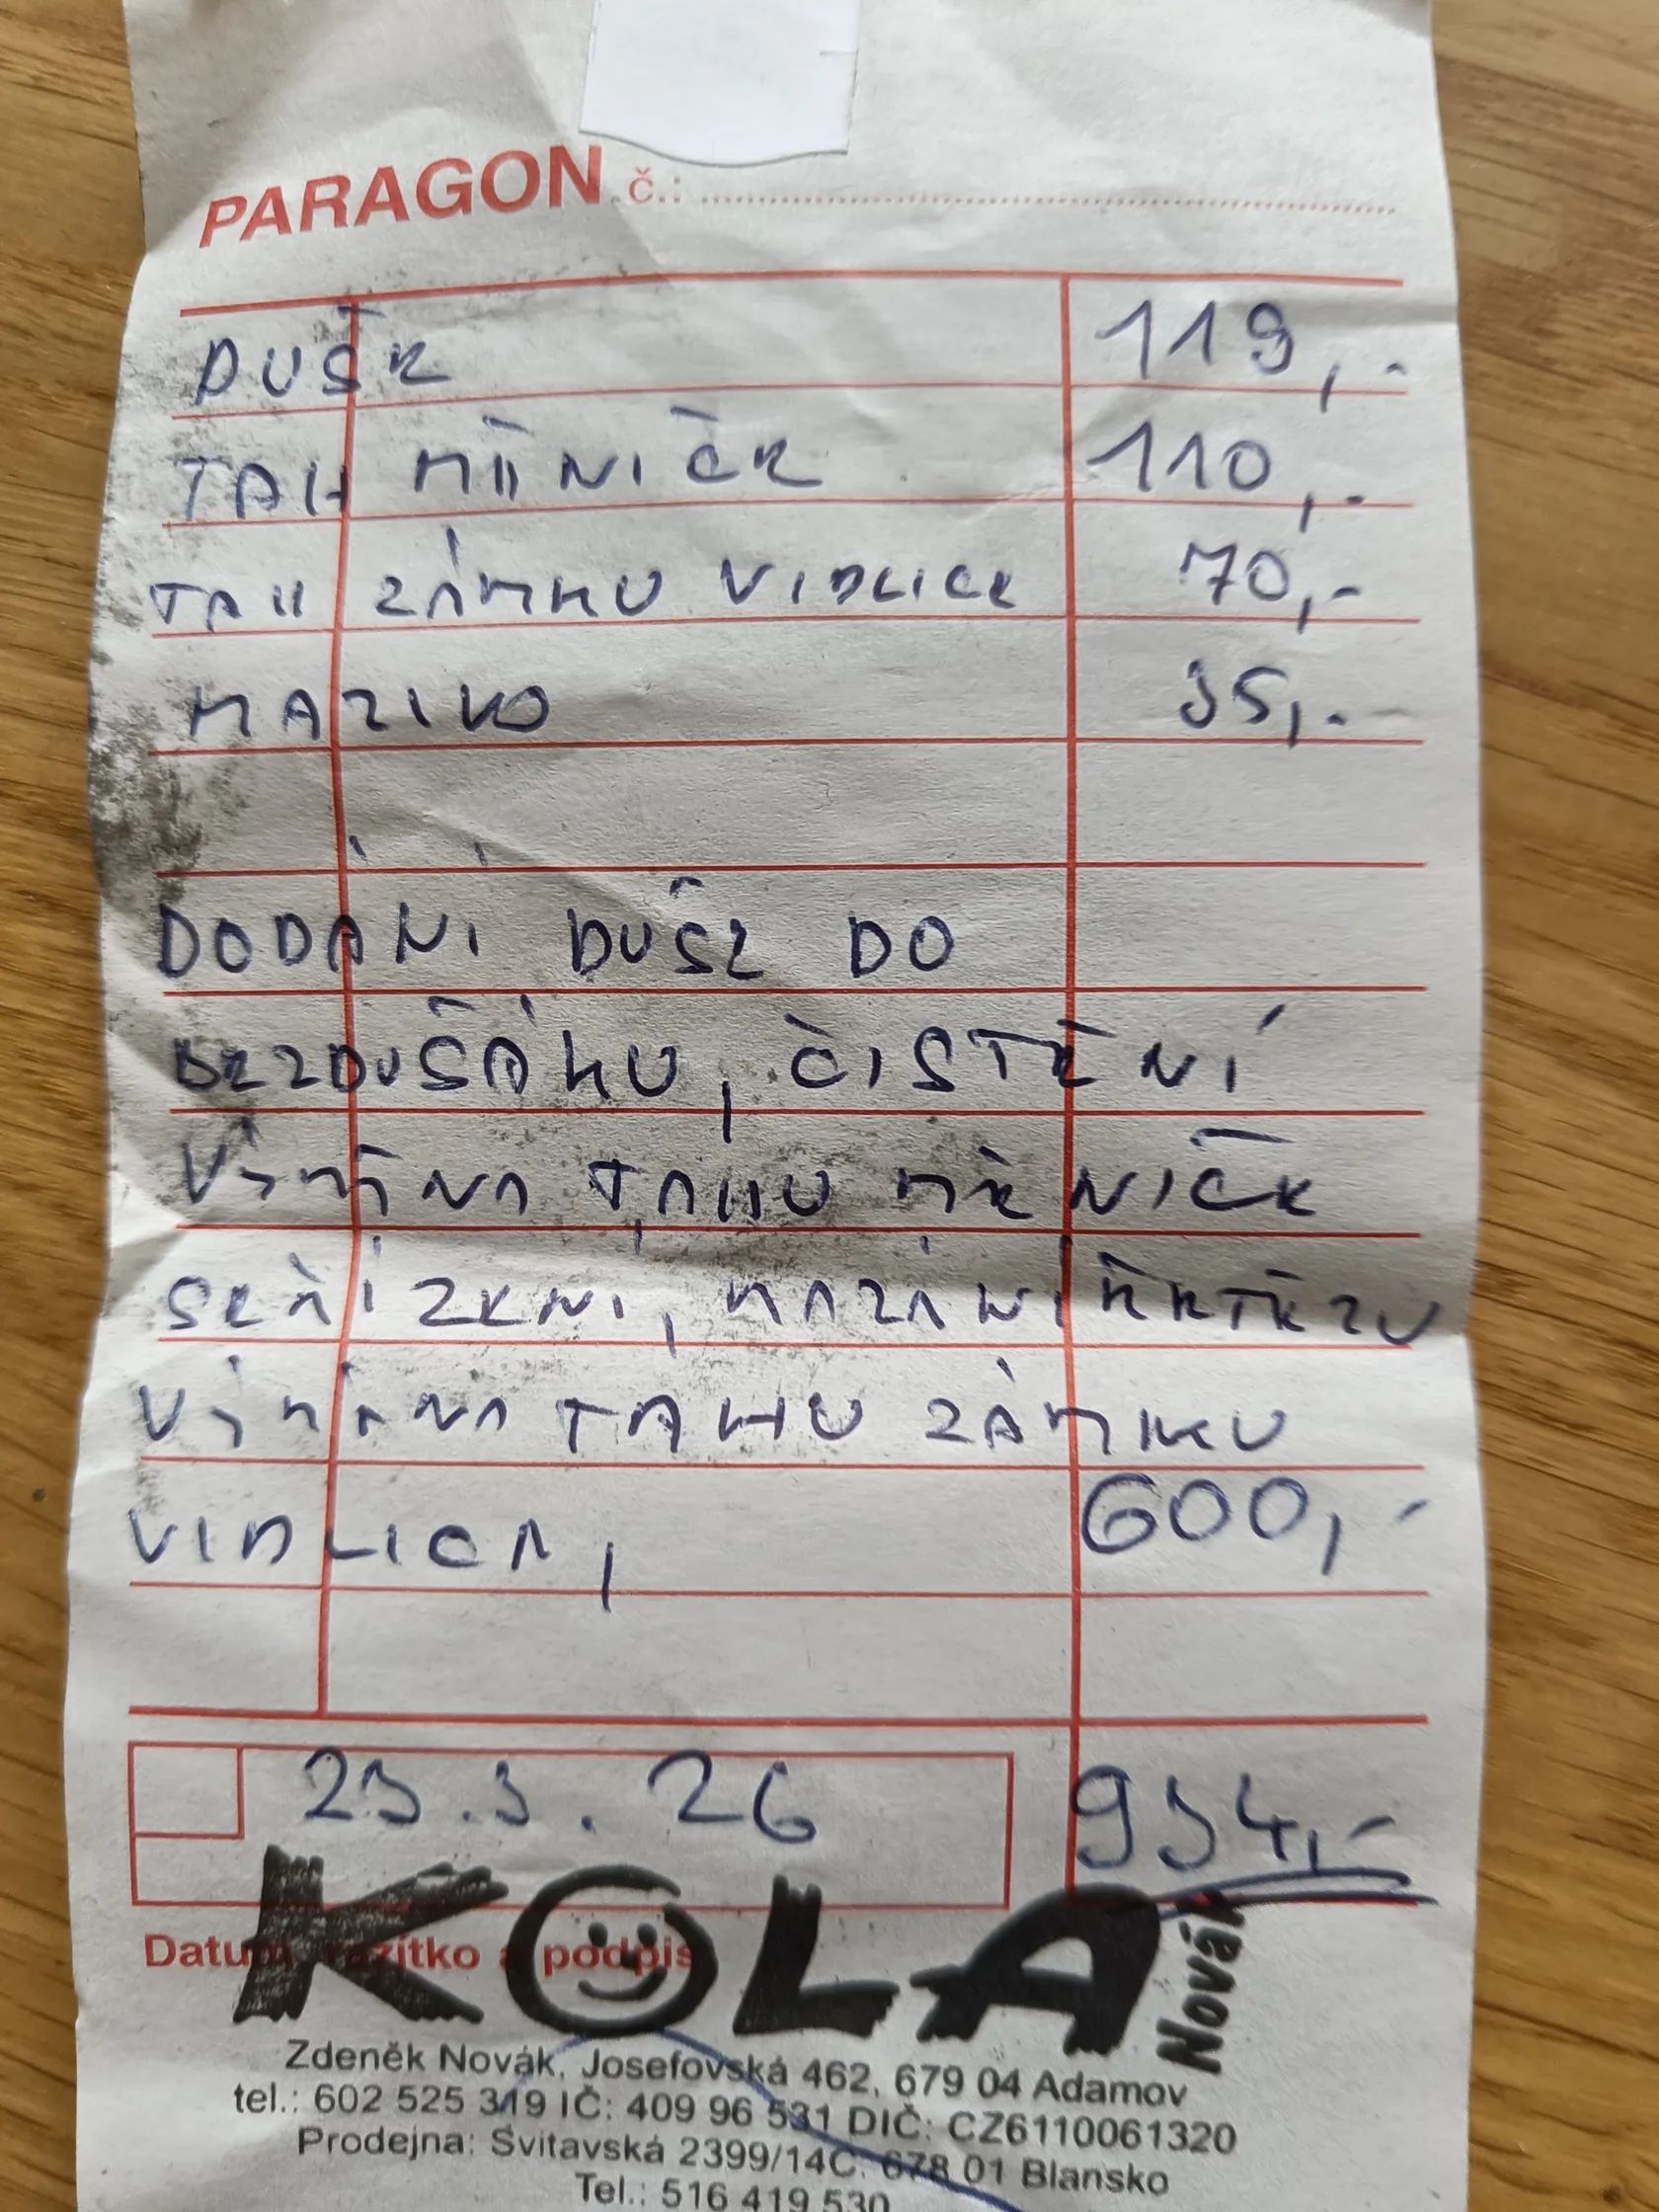 PARAGON č.:
DUŠE 119,-
TAH MĚNIČE 110,-
TAH ZÁMKU VIDLICE 70,-
MAZIVO 35,-
DODÁNÍ DUŠE DO
BEZDUŠÁKU, ČISTĚNÍ
VÝMĚNA TAHU MĚNIČE
SEŘÍZENÍ, MAZÁNÍ ŘETĚZU
VÝMĚNA TAHU ZÁMKU
VIDLICA, 600,-
23.3.26 934,-
Datum, razítko a podpis
KOLA Novák
Zdeněk Novák, Josefovská 462, 679 04 Adamov
tel.: 602 525 319 IČ: 409 96 531 DIČ: CZ6110061320
Prodejna: Svitavská 2399/14C, 678 01 Blansko
Tel.: 516 419 530